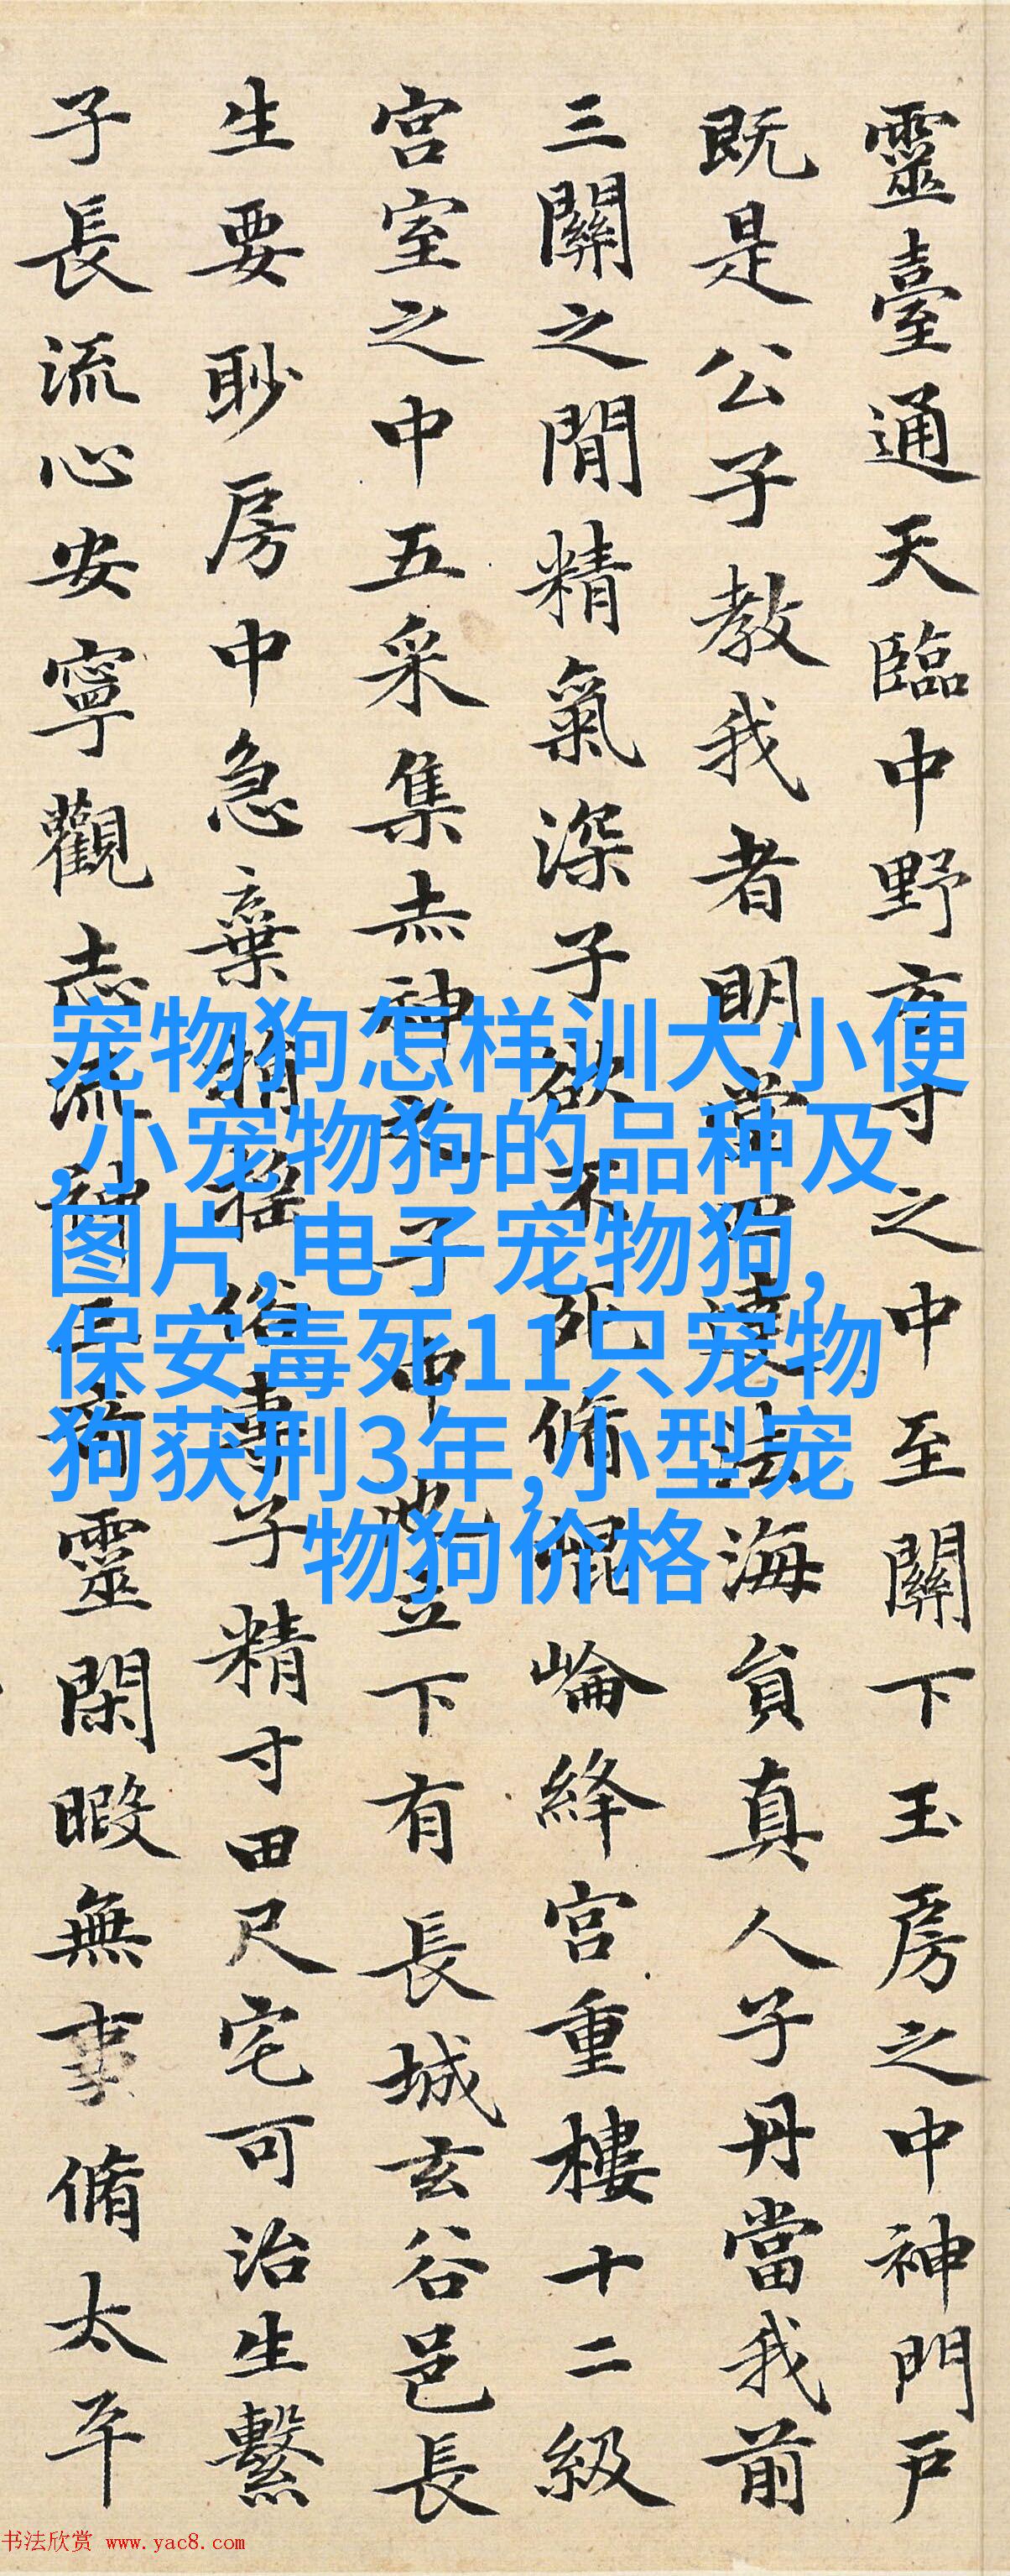 靈臺通天臨中野方寸之中至關下玉房之中神門戶
既是公子教我者明堂四達法海員真人子丹當我前
三關之間精氣深子欲不死脩崐崘絳宮重樓十二級
宮室之中五采集赤神之子中池立下有長城玄谷邑長
生要眇房中急棄捐搖俗專子精寸田尺宅可治生繫
子長流心安寧觀志流神三奇靈閑暇無事脩太平
宠物狗怎样训大小便
,小宠物狗的品种及
图片,电子宠物狗,
保安毒死11只宠物
狗获刑3年,小型宠
物狗价格
书法欣赏 www.yac8.com